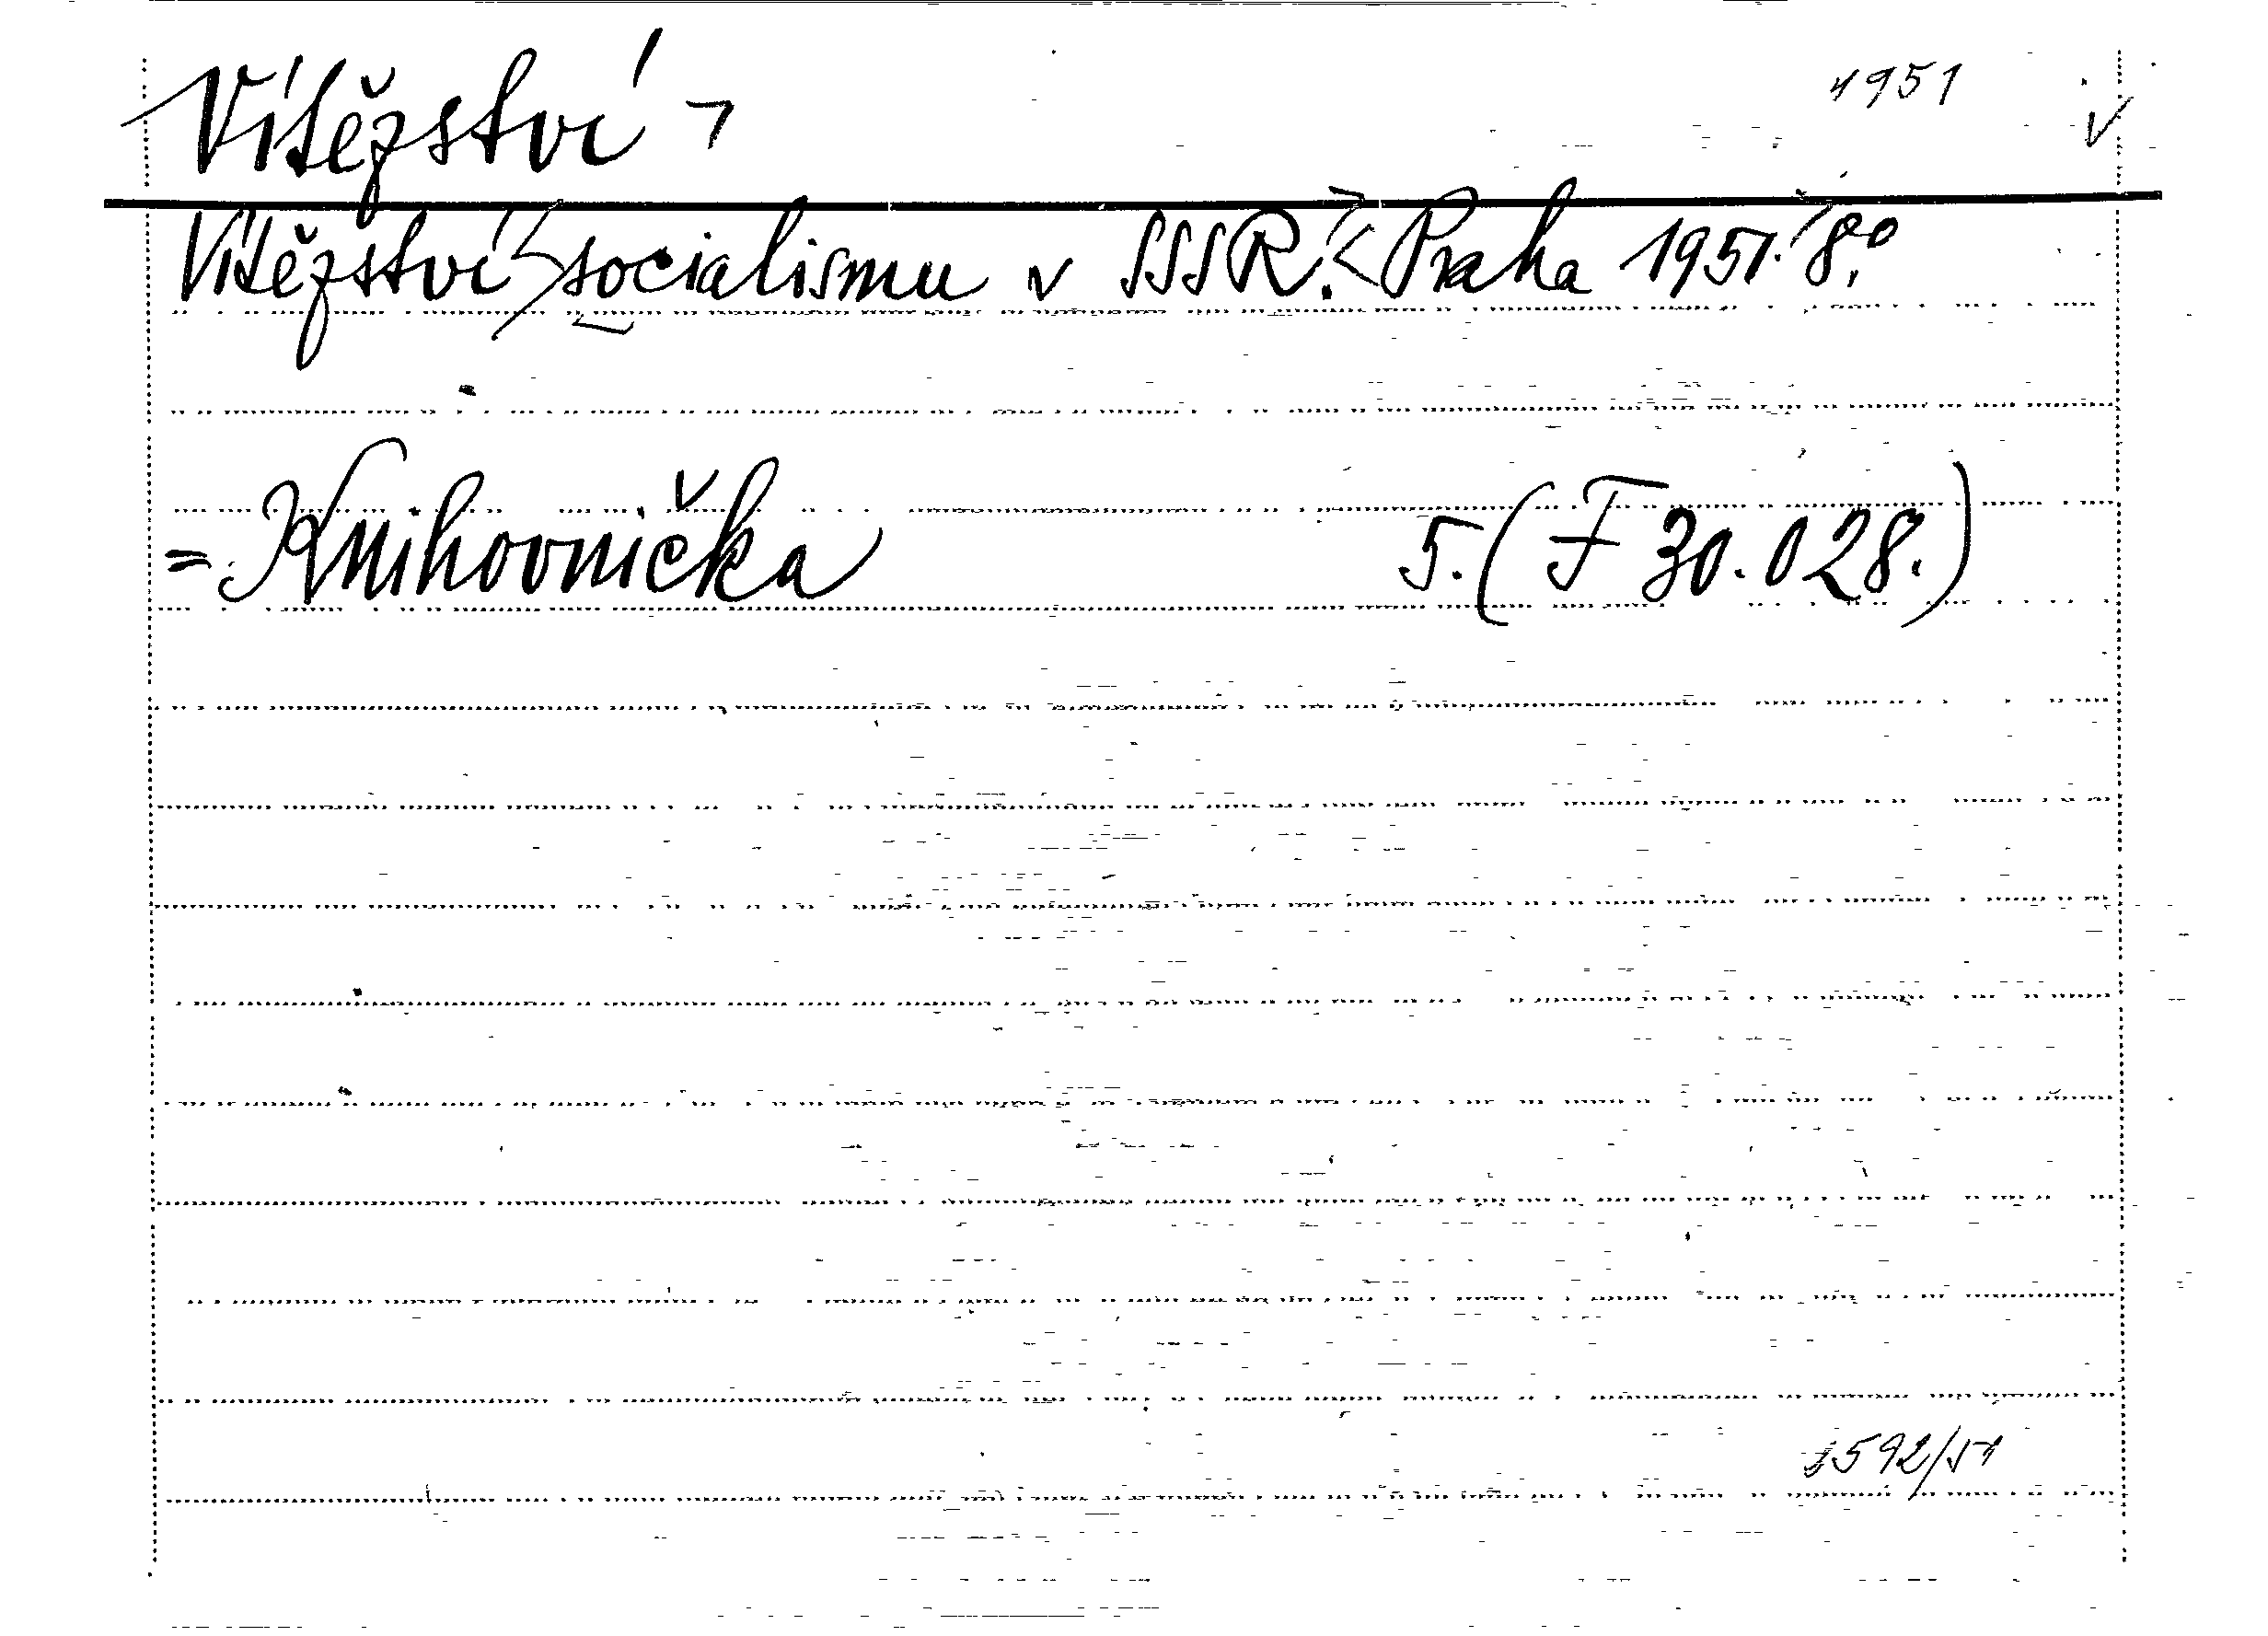 Vítězství 1951
Vítězství socialismu v SSSR. Praha 1951. 8°
= Knihovnička 5. (F 30.028.)
592/51